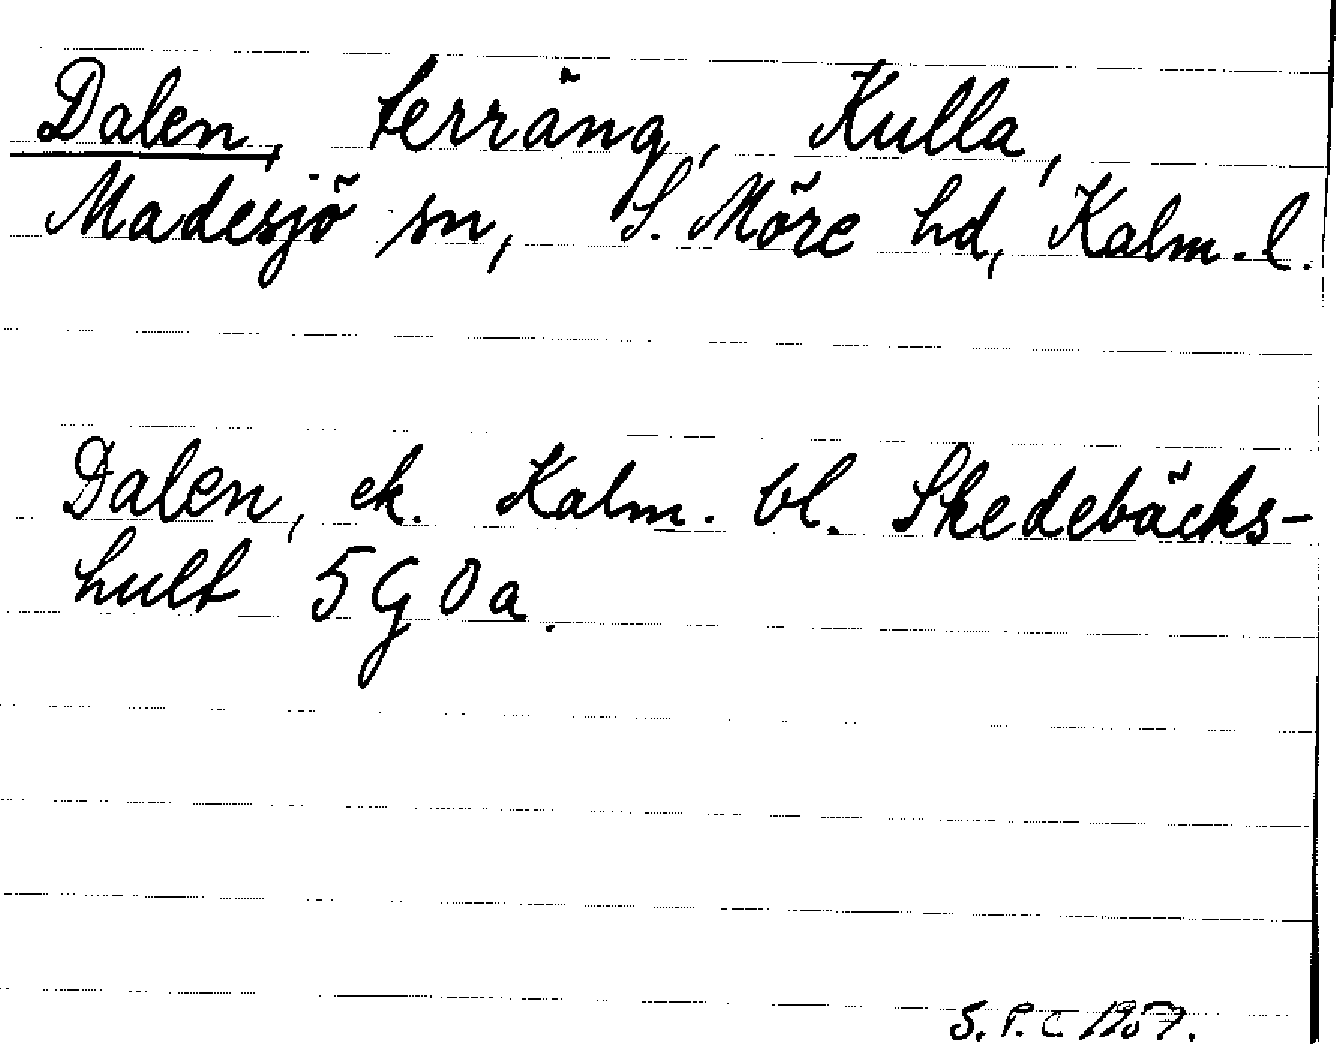 Dalen, terräng, Kulla,
Madesjö sn, S. Möre hd, Kalm. l.
Dalen, ek. Kalm. bl. Skedebäcks-
hult 5 G 0 a.
S. P. C 1957.